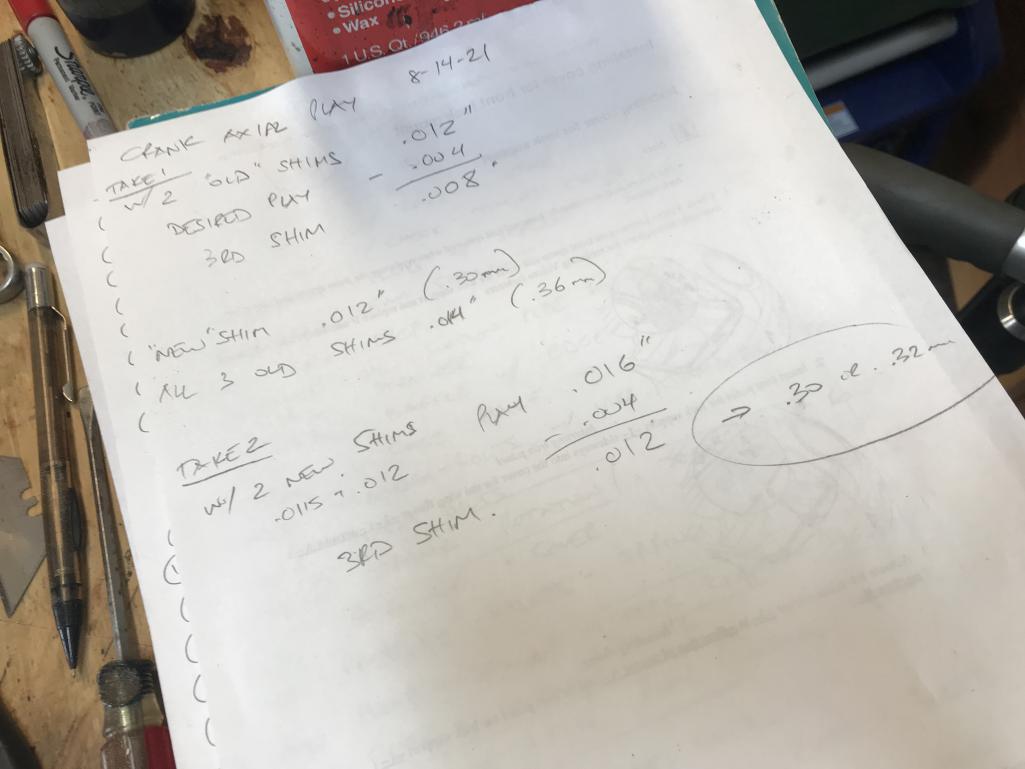 • Silicon
• Wax
1 U.S. Qt./946
Sharpie
8-14-21
CRANK AXIAL PLAY
TAKE 1
W/ 2 "OLD" SHIMS .012"
DESIRED PLAY - .004
3RD SHIM .008
"NEW" SHIM .012" (.30mm)
ALL 3 OLD SHIMS .014" (.36mm)
TAKE 2
W/ 2 NEW SHIMS PLAY .016"
.0115 + .012 - .004
.012 → .30 or .32mm
3RD SHIM.